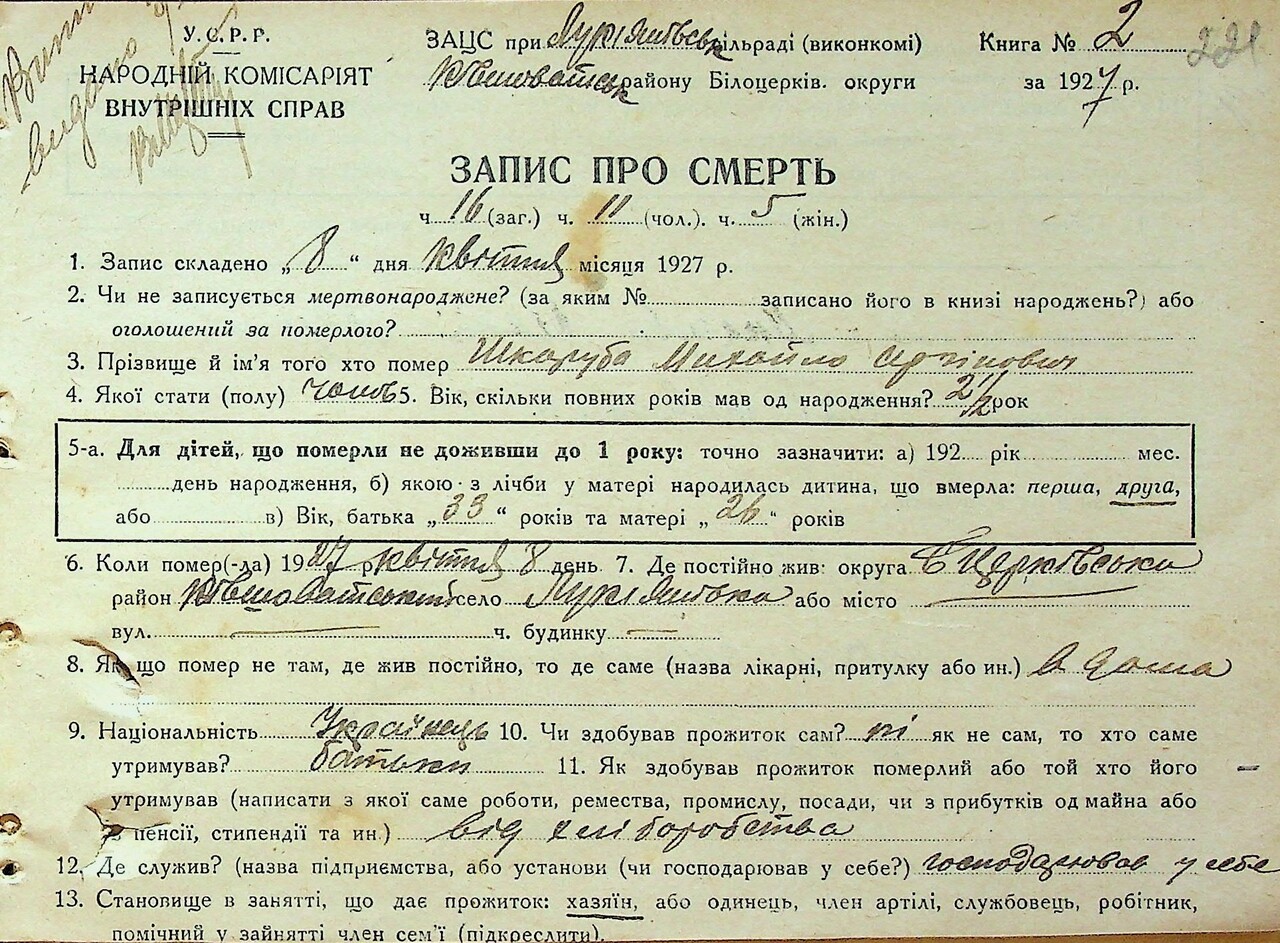 У.С.Р.Р.
НАРОДНІЙ КОМІСАРІЯТ
ВНУТРІШНІХ СПРАВ
видано
ЗАЦС при Лукіянівськ сільраді (виконкомі)
Ківшоватськ району Білоцерків. округи
Книга № 2
221
за 1927 р.
ЗАПИС ПРО СМЕРТЬ
ч. 16 (заг.) ч. 11 (чол.). ч. 5 (жін.)
1. Запис складено „ 8 “ дня квітня місяця 1927 р.
2. Чи не записується мертвонароджене? (за яким № записано його в книзі народжень?) або
оголошений за померлого?
3. Прізвище й ім'я того хто помер Шкаруба Михайло
4. Якої стати (полу) чолов 5. Вік, скільки повних років мав од народження? 2 1/2 рок
5-а. Для дітей, що померли не доживши до 1 року: точно зазначити: а) 192 рік мес.
день народження, б) якою з лічби у матері народилась дитина, що вмерла: перша, друга,
або в) Вік, батька „ 33 “ років та матері „ 26 “ років
6. Коли помер(-ла) 1927 р квітня 8 день 7. Де постійно жив: округа Б Церківська
район Ківшоватський село Лукіянівка або місто
вул. ч. будинку
8. Якщо помер не там, де жив постійно, то де саме (назва лікарні, притулку або ин.) в дома
9. Національність Українець 10. Чи здобував прожиток сам? ні як не сам, то хто саме
утримував? батьки 11. Як здобував прожиток померлий або той хто його
утримував (написати з якої саме роботи, ремества, промислу, посади, чи з прибутків од майна або
з пенсії, стипендії та ин.) від хліборобства
12. Де служив? (назва підприємства, або установи (чи господарював у себе?) господарював у себе
13. Становище в занятті, що дає прожиток: хазяїн, або одинець, член артілі, службовець, робітник,
помічний у зайнятті член сем'ї (підкреслити).